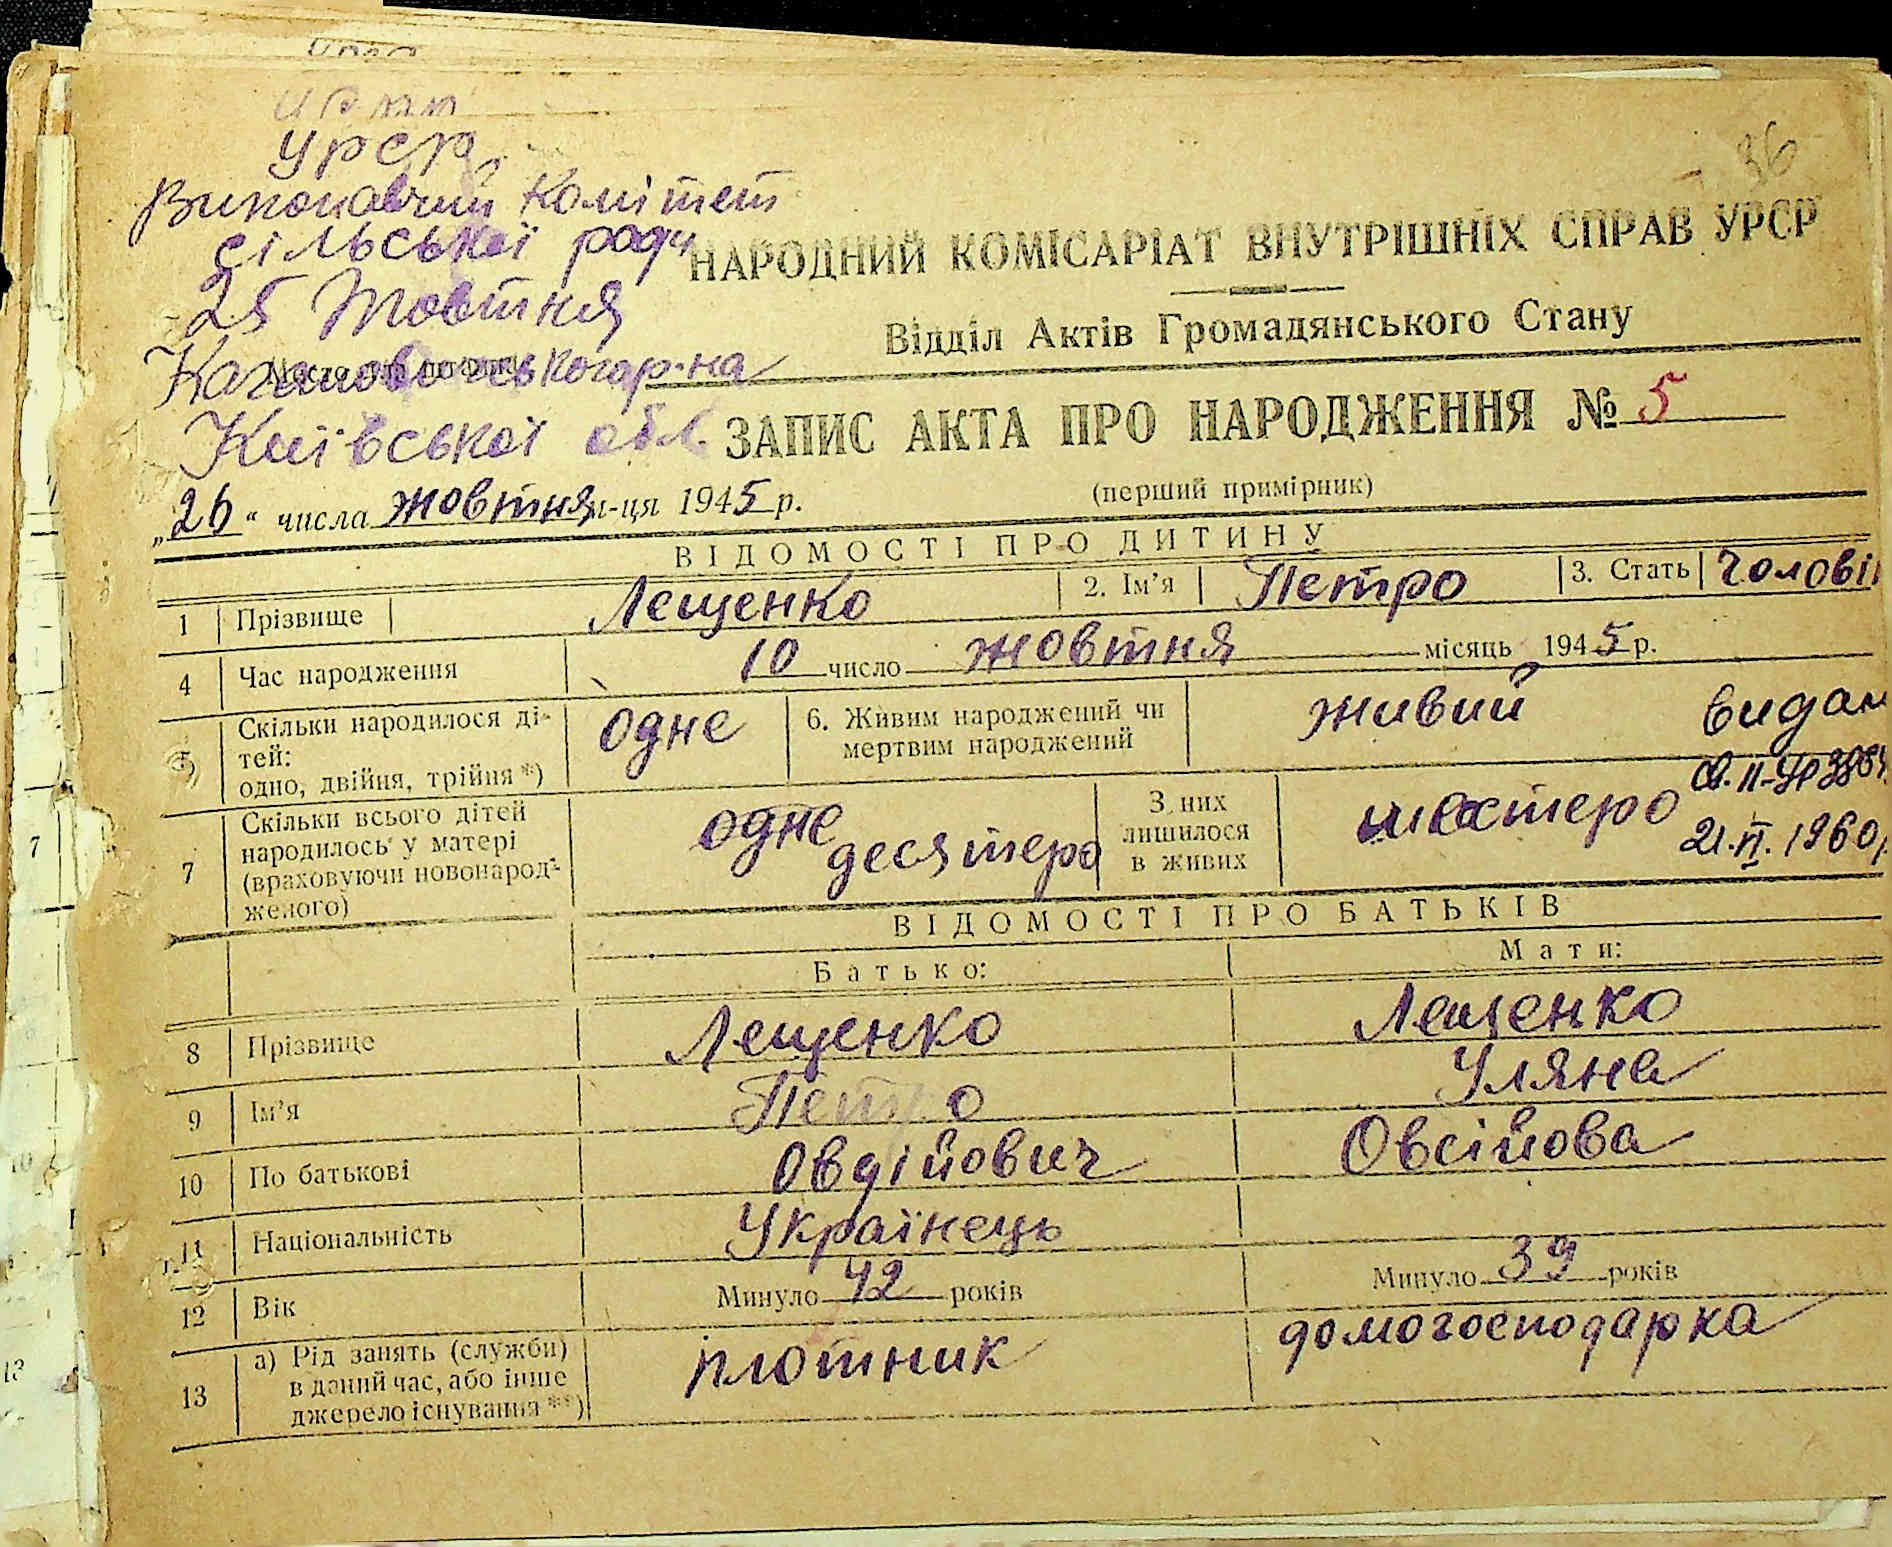 36
УРСР
Виконавчий комітет
сільської ради
НАРОДНИЙ КОМІСАРІАТ ВНУТРІШНІХ СПРАВ УРСР
25 Жовтня
Відділ Актів Громадянського Стану
р-на
Київської обл.
ЗАПИС АКТА ПРО НАРОДЖЕННЯ № 5
(перший примірник)
„26“ числа жовтня м-ця 1945 р.
ВІДОМОСТІ ПРО ДИТИНУ
1 Прізвище Лещенко 2. Ім’я Петро 3. Стать Чоловік
4 Час народження 10 число жовтня місяць 1945 р.
5 Скільки народилося ді-
тей:
одно, двійня, трійня *)
одне
6. Живим народжений чи
мертвим народжений
живий
видан
св. II-
21.VI.1960р
7 Скільки всього дітей
народилось у матері
(враховуючи новонарод-
женого)
одне
десятеро
З них
лишилося
в живих
шестеро
ВІДОМОСТІ ПРО БАТЬКІВ
Батько: Мати:
8 Прізвище Лещенко Лещенко
9 Ім’я Петро Уляна
10 По батькові Овдійович Овсійова
11 Національність Українець
12 Вік Минуло 42 років Минуло 39 років
13 а) Рід занять (служби)
в даний час, або інше
джерело існування **)
плотник домогосподарка
7
10
13